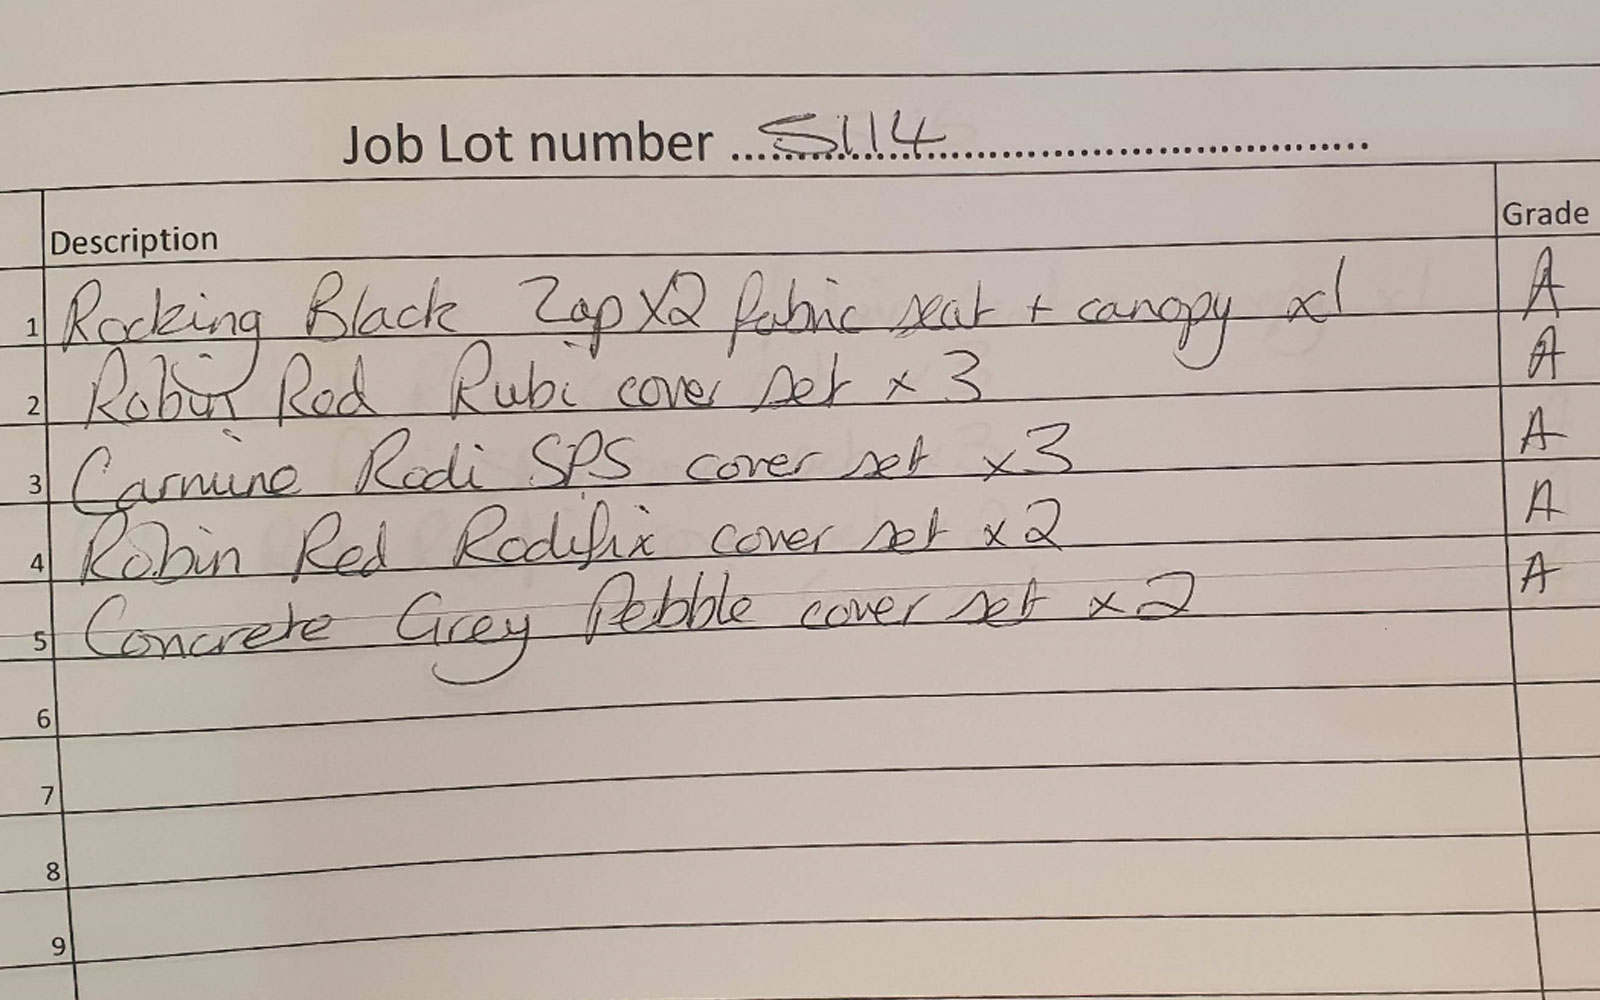 Job Lot number ........S114........
Description Grade
1 Rocking Black Zap X2 fabric seat + canopy x1 A
2 Robin Red Rubi cover set x 3 A
3 Carmine Rodi SPS cover set x3 A
4 Robin Red Rodifix cover set x2 A
5 Concrete Grey Pebble cover set x2 A
6
7
8
9